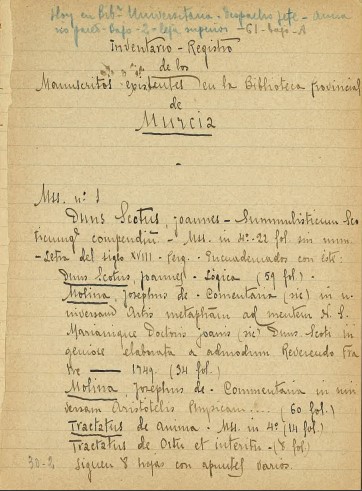 Hoy en Bibª Universitaria - Despacho jefe - arma
rio pared - bajo - 2 - leja superior - G1 - bajo - A
Inventario - Registro
de los
Manuscritos existentes en la Biblioteca Provincial
de
Murcia
-
Mss. n.º 1
Duns Scotus, Joannes - Summulisticum Sco
ticumq. compendiũ - Mss. in 4º - 22 fol. sin num.
- Letra del siglo XVIII - Perg. - Encuadernados con éste:
Duns Scotus, Joannes - Lógica (59 fol.) -
Molina, Josephus de - Comentaria (sic) in u-
niversam Artis metaphiam ad mentem N. S.
Marianique Doctoris Joanis (sic) Duns Scoti in
geniose elaborata a admodum Reverendo fra
tre — 1749. (34 fol.)
Molina, Josephus de - Commentaria in uni
versam Aristotelis Physicam.... (60 fol.)
Tractatus de Anima - Mss. in 4º (14 fol.)
Tractatus de Ortu et interitu - (8 fol.)
30-2 Siguen 8 hojas con apuntes varios.